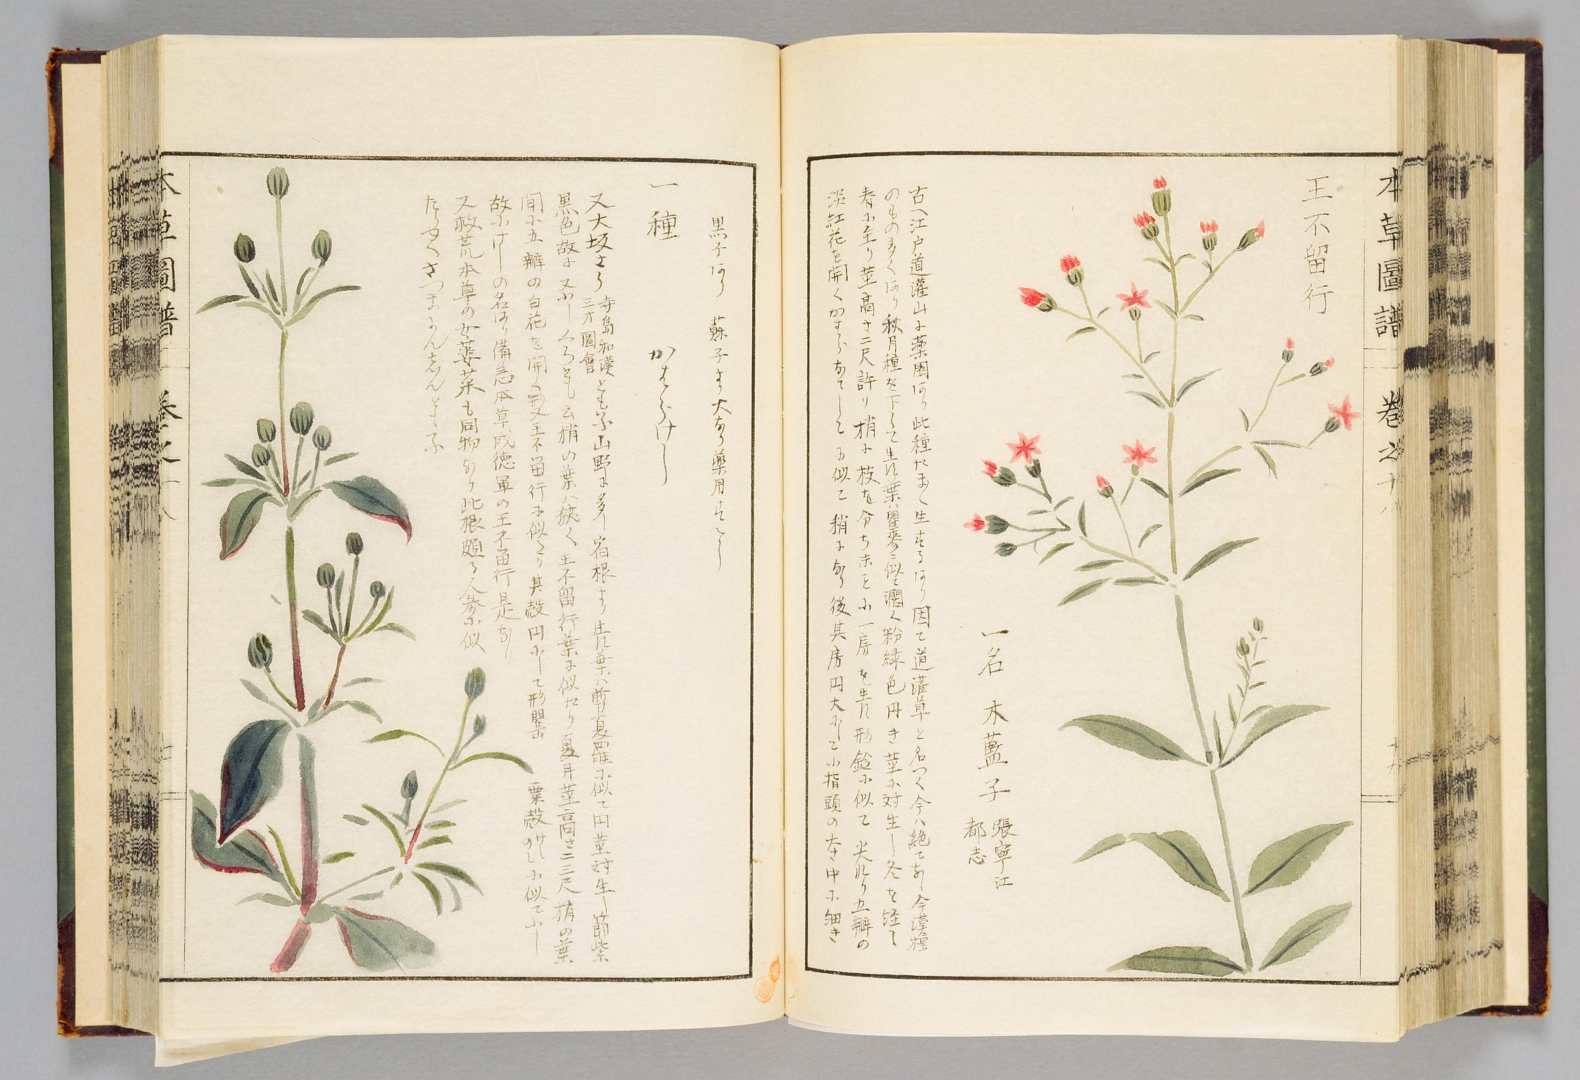 本草圖譜 巻之十八
王不留行
一名 木藍子 張寧江
都志
古へ江戸道灌山に薬園あり此種たまたま生するあり因て道灌草と名つく今ハ絶てなし今漢種
のもの多くあり秋月種を下して生す葉ハ瞿麥に似て濶く粉緑色円き莖に対生し冬を経て
春に至り莖高さ二尺許り梢に枝を分ち末に一房を生す形鈴に似て尖れり五瓣の
淡紅花を開くかすみなてしこに似て稍小なり後其房円大にして小指頭の大さ中に細き
黒子あり 蘇子より大なり薬用すへし
一種 かはらけし
又大坂そう 寺島和漢
三才圖會 ともいふ山野に多し宿根より生す葉ハ剪夏羅に似て円莖対生し節紫
黒色故に又ふしくろとも云梢の葉ハ狭く王不留行葉に似たり夏月莖高さ二三尺梢の葉
間に五瓣の白花を開く形又王不留行に似たり其殻円にして形罌 粟殻けしのみに似て小し
故にけしの名あり備急本草成徳軍の王不留行是なり
又救荒本草の女蔞菜も同物なり此根頗る人参に似
たり
本草圖譜 巻之十八